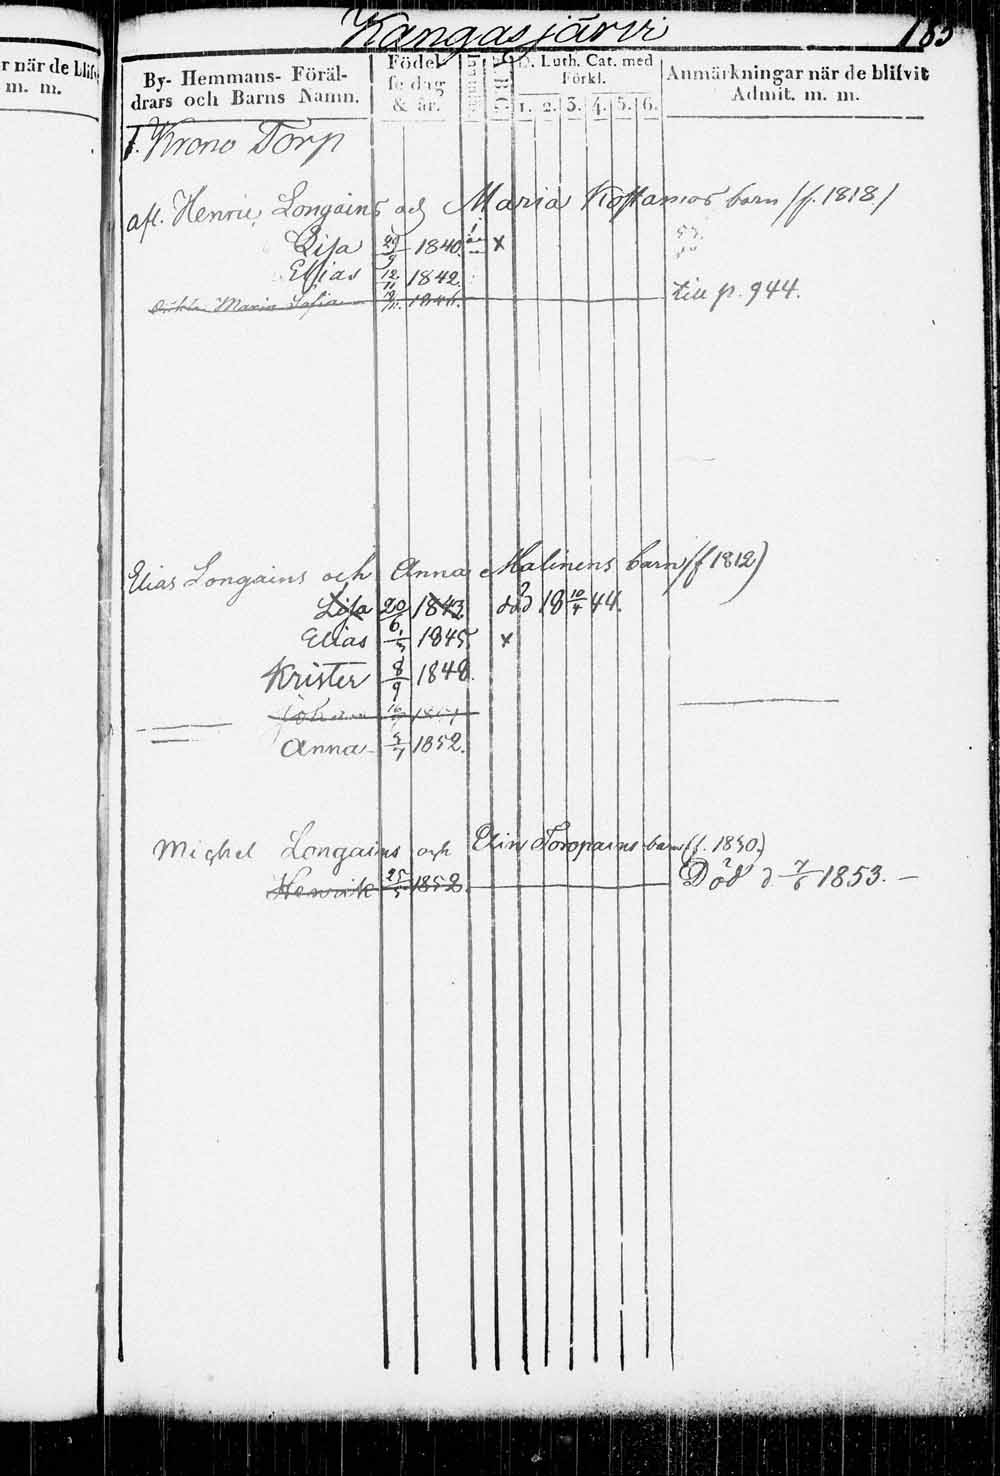 Kangasjärvi 185
r när de blifv
m. m.
By- Hemmans- Föräl-
drars och Barns Namn.
Födel-
se dag
& år.
ABC
D. Luth. Cat. med
Förkl.
1. 2. 3. 4. 5. 6.
Anmärkningar när de blifvit
Admit. m. m.
1. Krono Torp
afl. Henric Longains och Maria Kostamos barn /f. 1818/
Lisa 29/9 1840. x
Elias 12/11 1842.
Maria Sofia 1846. till p. 944.
Elias Longains och Anna Malinens barn /f 1812)
Lisa 20/6 1843. död 18 10/4 44.
Elias 1/5 1845. x
Krister 8/9 1848.
Johan 1851
Anna 5/7 1852.
Michel Longains och Elin Toropains barn (f. 1830.)
Henrik 25/5 1852. Död d. 7/6 1853.